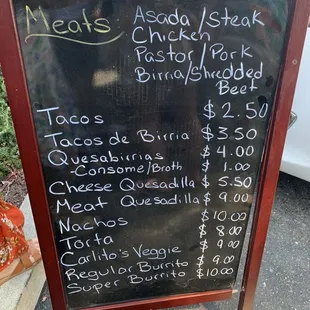 Meats
Asada/Steak
Chicken
Pastor/Pork
Birria/Shredded
Beef
Tacos $2.50
Tacos de Birria $3.50
Quesabirrias $4.00
-Consome/Broth $1.00
Cheese Quesadilla $5.50
Meat Quesadilla $9.00
Nachos $10.00
Torta $8.00
Carlito's Veggie $9.00
Regular Burrito $9.00
Super Burrito $10.00